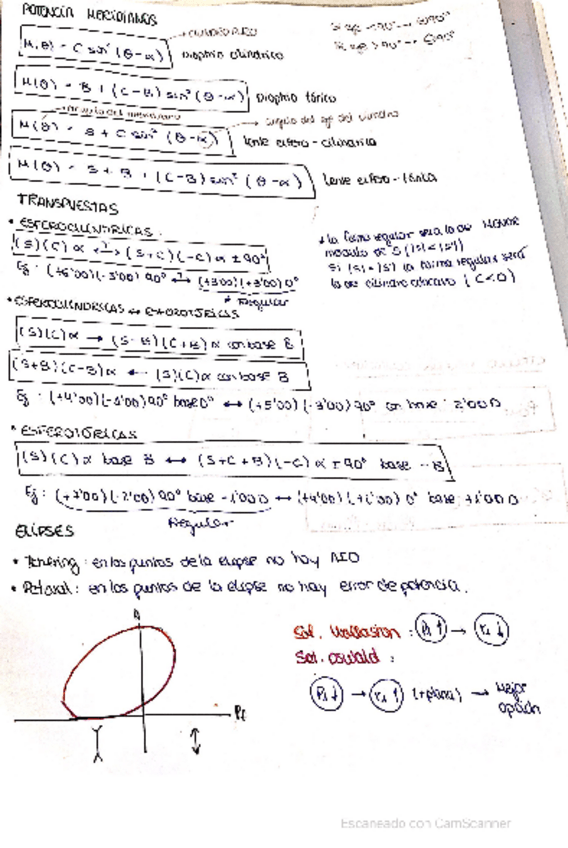 POTENCIA MERIDIANOS
M(θ) = C sin² (θ-α) Dioptrio cilíndrico
M(θ) = B + (C-B) sin² (θ-α) Dioptrio tórico
M(θ) = S + C sin² (θ-α) lente esfero-cilíndrica
ángulo del eje del cilindro
M(θ) = S + B + (C-B) sin² (θ-α) lente esfero-tórica
TRANSPUESTAS
• ESFEROCILÍNDRICAS:
(S)(C) α ↔ (S+C)(-C) α ± 90°
Ej: (+6'00)(-3'00) 90° ↔ (+3'00)(+3'00) 0°
* Regular
* la forma regular será la de MENOR
módulo de S (|S|<|S'|)
Si |S| = |S'| la forma regular será
la de cilindro cóncavo (C<0)
• ESFEROCILÍNDRICAS ↔ ESFEROTÓRICAS
(S)(C) α → (S-B)(C+B) α con base B
(S+B)(C-B) α ← (S)(C) α con base B
Ej: 90° base ↔ (+5'00)(-3'00) 90° con base: 2'00D
• ESFEROTÓRICAS
(S)(C) α base B ↔ (S+C+B)(-C) α ± 90° base -B
Ej: 90° base -1'00D ↔ 0° base +1'00D
Regular
ELIPSES
• Tcherning: en los puntos de la elipse no hay AEO
• en los puntos de la elipse no hay error de potencia.
P₂
Sol. Wollaston: ↑ → ↓
Sol. Ostwald:
↓ → ↑ (+plana) → Mejor
opción
Escaneado con CamScanner